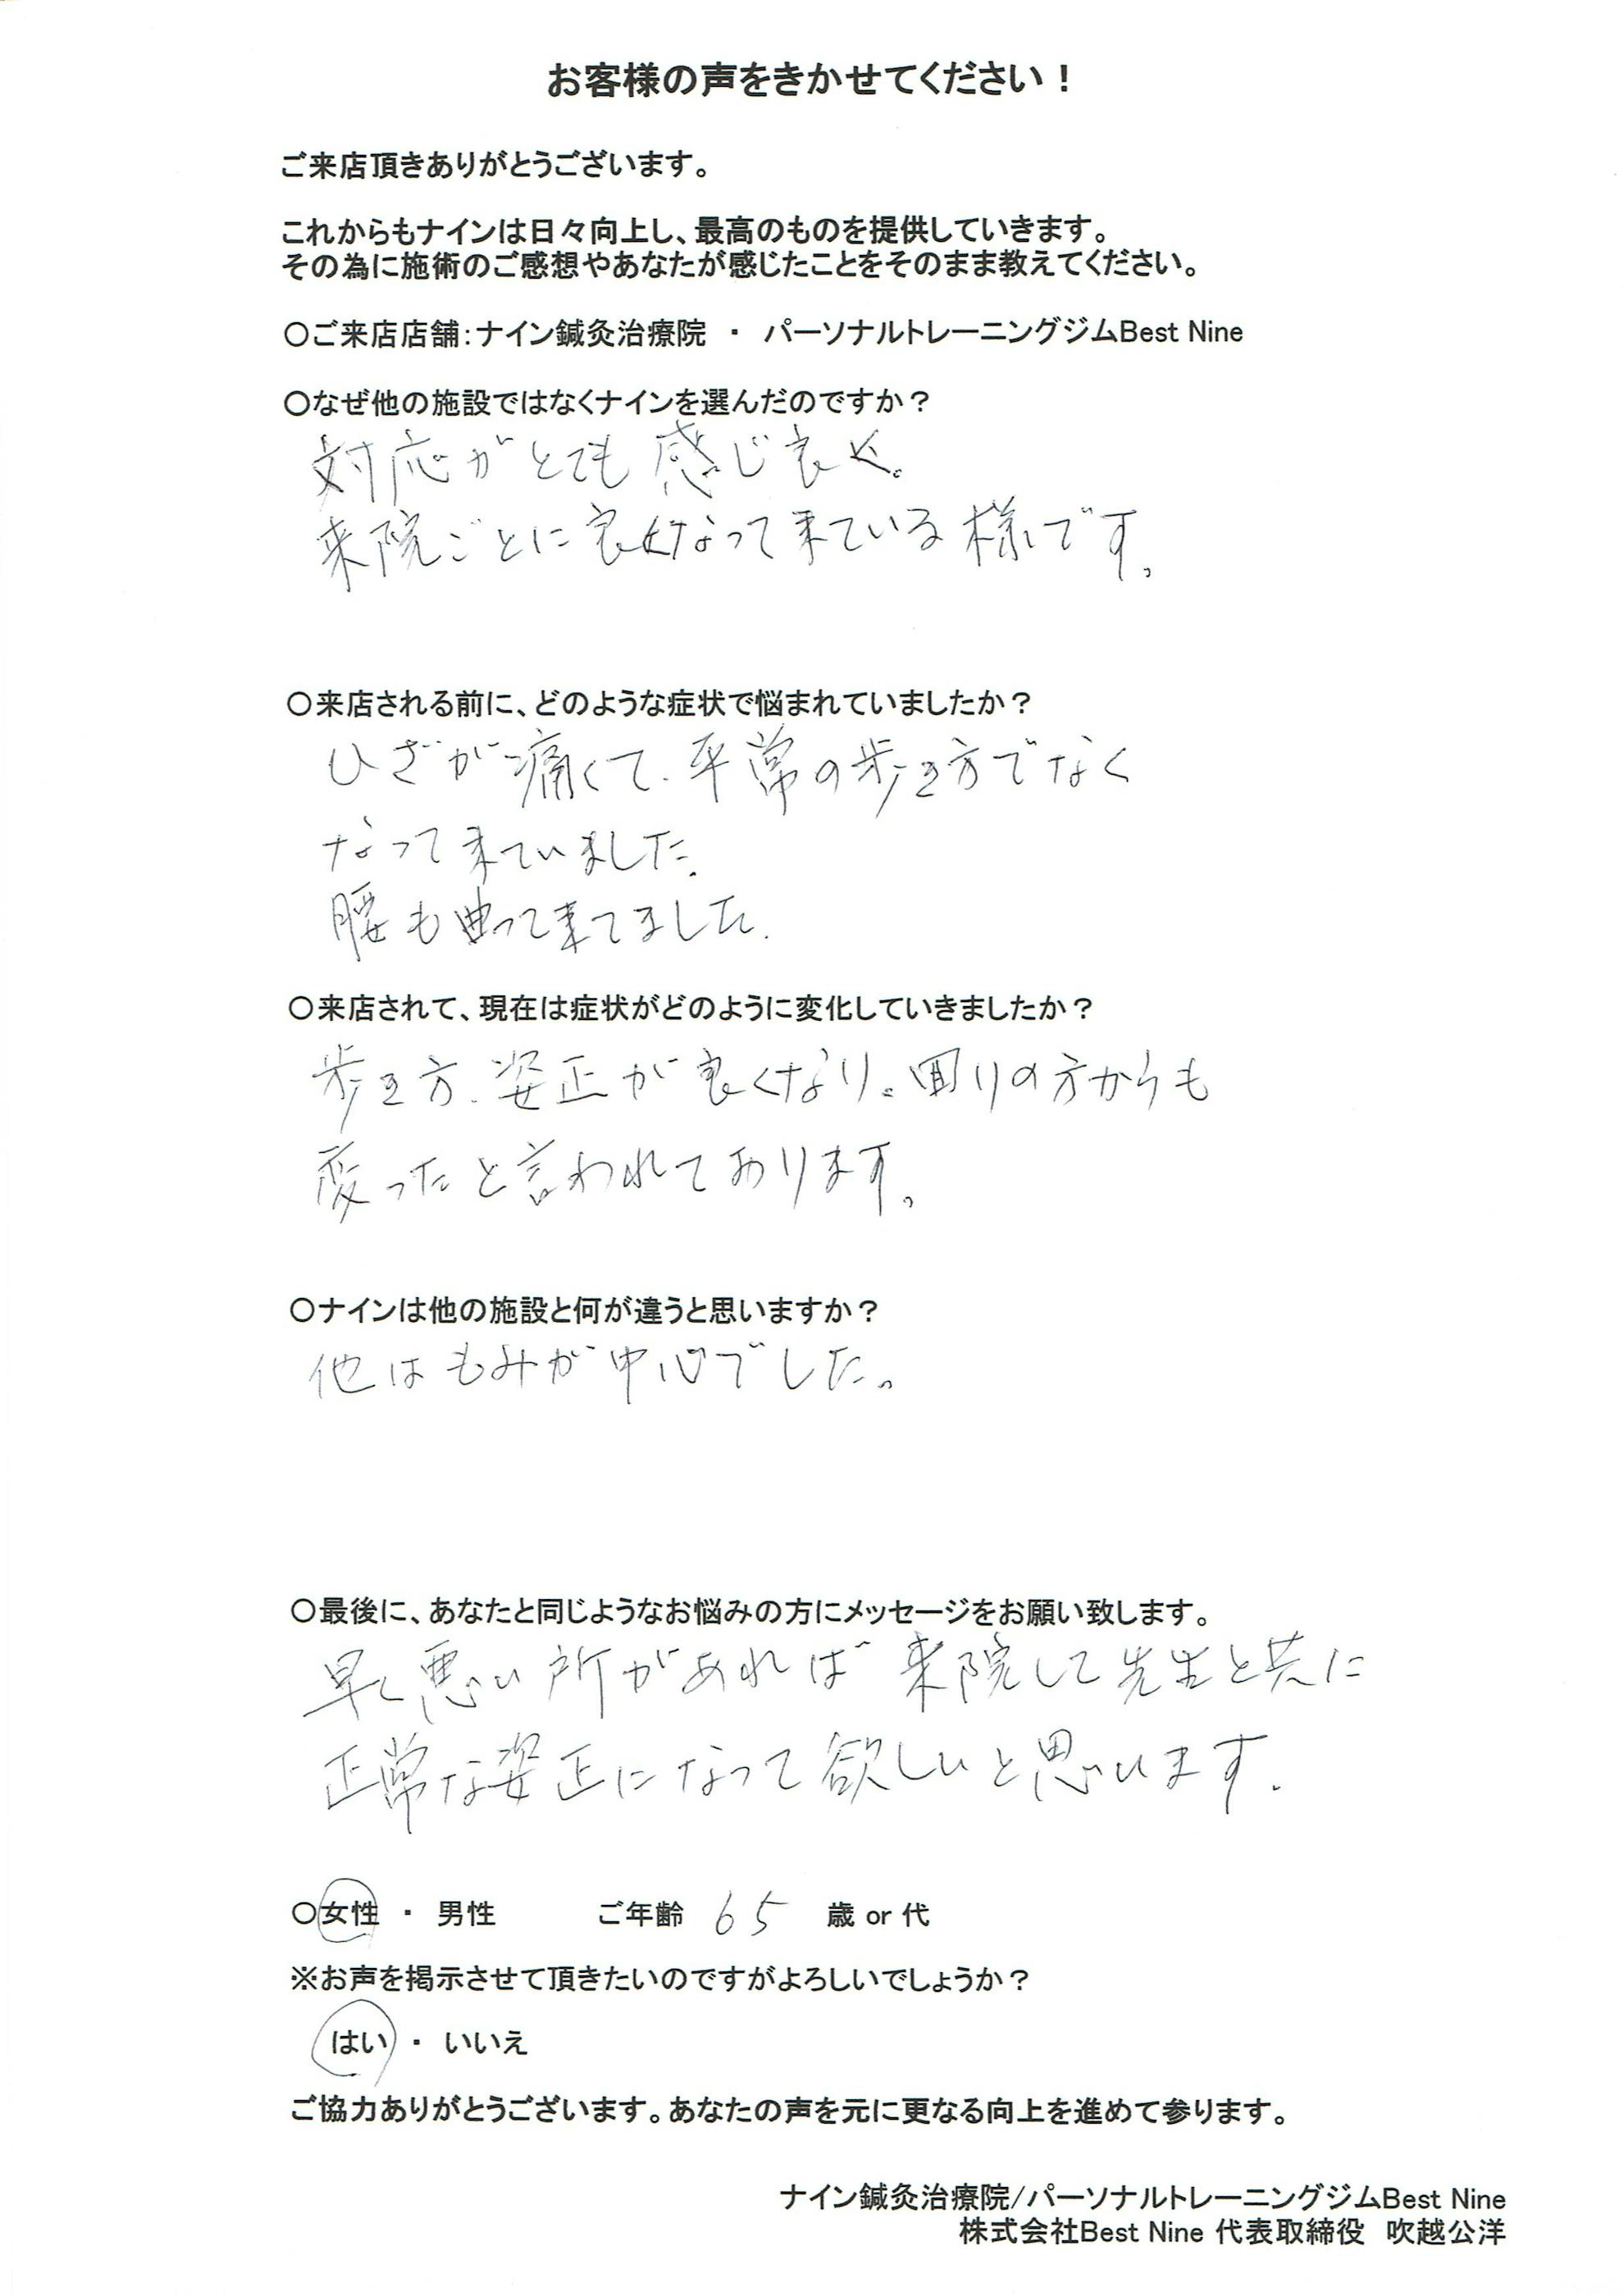 お客様の声をきかせてください！
ご来店頂きありがとうございます。
これからもナインは日々向上し、最高のものを提供していきます。
その為に施術のご感想やあなたが感じたことをそのまま教えてください。
○ご来店店舗：ナイン鍼灸治療院 ・ パーソナルトレーニングジムBest Nine
○なぜ他の施設ではなくナインを選んだのですか？
対応がとても感じ良く。
来院ごとに良くなって来ている様です。
○来店される前に、どのような症状で悩まれていましたか？
ひざが痛くて、平常の歩き方でなく
なって来ていました。
腰も曲って来てました。
○来店されて、現在は症状がどのように変化していきましたか？
歩き方、姿正が良くなり。回りの方からも
変ったと言われております。
○ナインは他の施設と何が違うと思いますか？
他はもみが中心でした。
○最後に、あなたと同じようなお悩みの方にメッセージをお願い致します。
早く悪い所があれば来院して先生と共に
正常な姿正になって欲しいと思います。
○女性 ・ 男性 ご年齢 65 歳 or 代
※お声を掲示させて頂きたいのですがよろしいでしょうか？
はい ・ いいえ
ご協力ありがとうございます。あなたの声を元に更なる向上を進めて参ります。
ナイン鍼灸治療院/パーソナルトレーニングジムBest Nine
株式会社Best Nine 代表取締役 吹越公洋